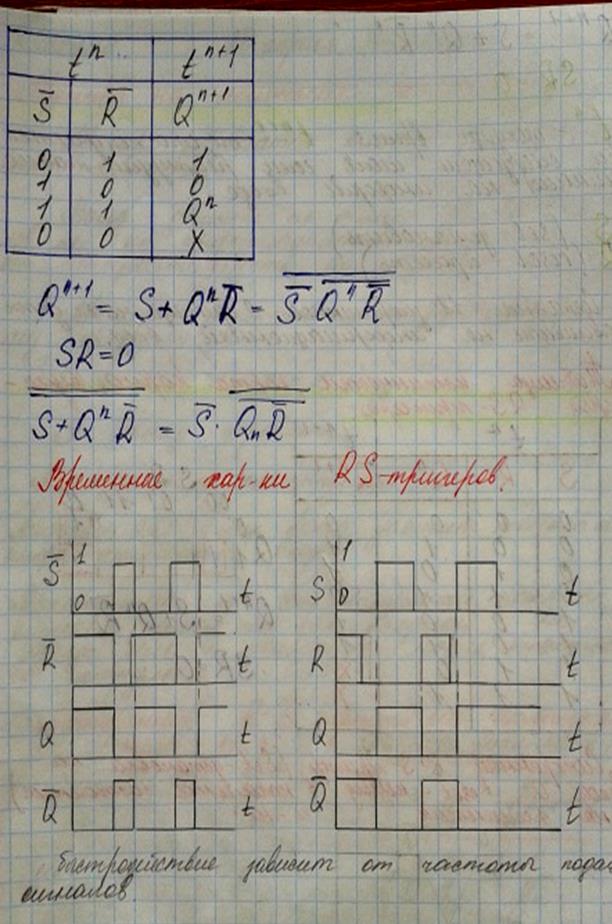 tⁿ tⁿ⁺¹
S̅ R̅ Qⁿ⁺¹
0 1 1
1 0 0
1 1 Qⁿ
0 0 X
Qⁿ⁺¹ = S + QⁿR̅ = \overline{\overline{S} \overline{Qⁿ \overline{R}}}
SR = 0
\overline{\overline{S + Qⁿ R̅}} = \overline{S̅ · \overline{Qₙ R̅}}
Временные хар-ки RS-тригеров.
S̅ 1 0 t
R̅ t
Q t
Q̅ t
S 1 0 t
R t
Q t
Q̅ t
быстродействие зависит от частоты
сигналов.